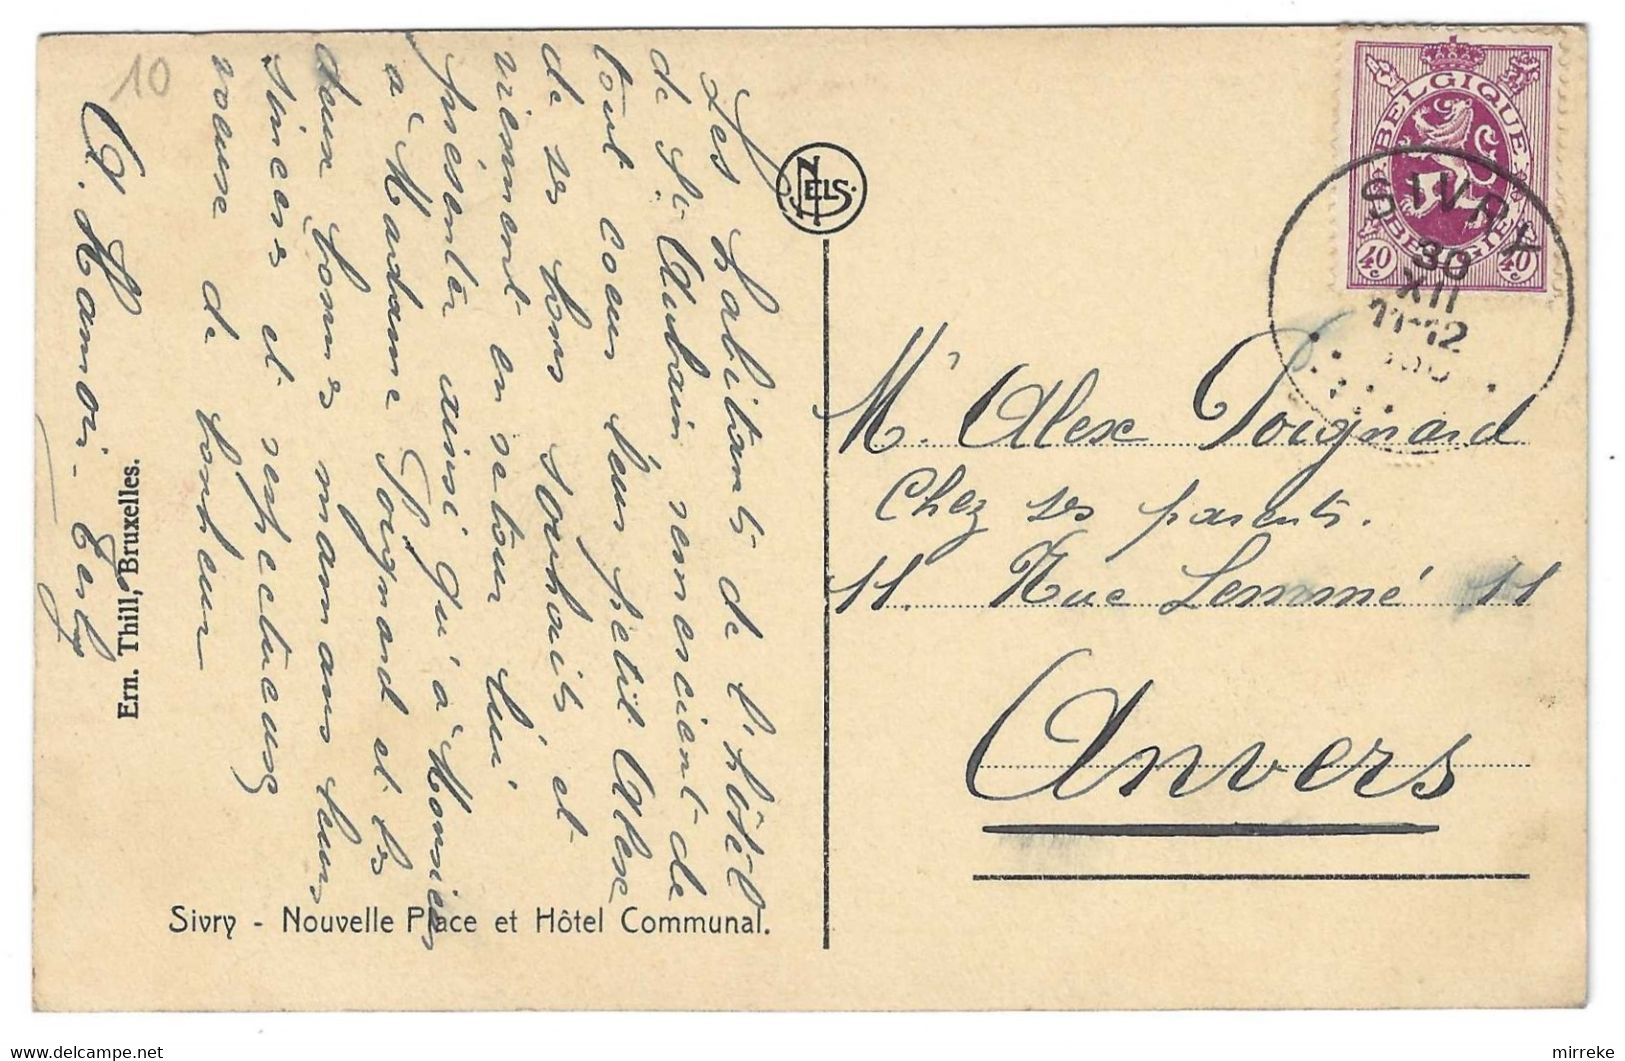 10
Les habitants de l'hôtel
de St Aubain remercient de
tout coeur leur petit Alex
de ses bons souhaits et
viennent en retour lui
présenter ainsi qu'à Monsieur
à Madame Poignard et les
deux bonnes mamans leurs
sincères et respectueux
voeux de bonheur
A. Hamoir
Ern. Thill, Bruxelles.
Sivry - Nouvelle Place et Hôtel Communal.
NELS
BELGIQUE
BELGIË
40c 40c
SIVRY
30
XII
11-12
Mr Alex Poignard
Chez ses parents.
11. Rue Lemmé 11
Anvers
mirreke